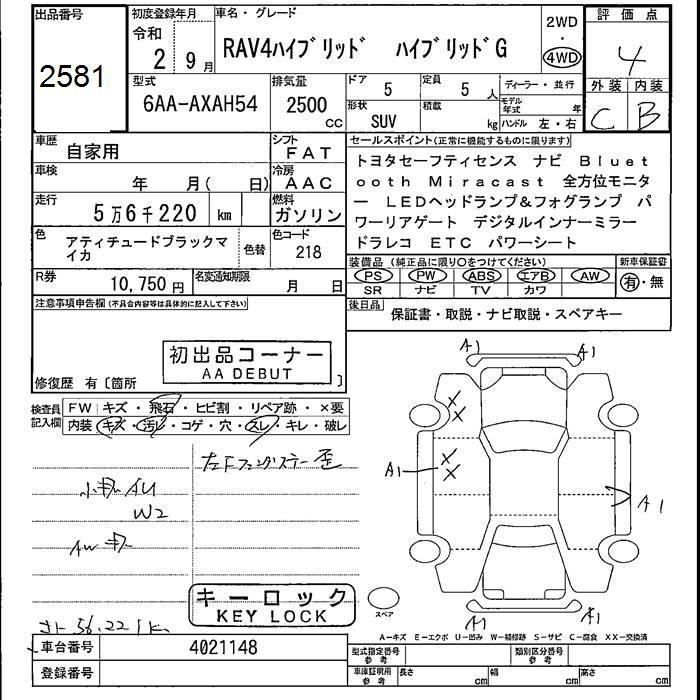 出品番号
2581
初度登録年月
令和
2 9月
車名・グレード
RAV4ハイブリッド ハイブリッドG
2WD
・
4WD
評価点
4
外装 内装
C B
型式
6AA-AXAH54
排気量
2500
cc
ドア
5
定員
5 人
形状
SUV
積載
kg
ディーラー・並行
モデル年式 年
ハンドル 左・右
車歴
自家用
シフト
FAT
車検
年 月( 日)
冷房
AAC
走行
5万6千220 km
燃料
ガソリン
色
アティチュードブラックマイカ
色替
色コード
218
R券
10,750円
名変通知期限
月 日
セールスポイント(正常に機能するものに限ります)
トヨタセーフティセンス ナビ Bluet
ooth Miracast 全方位モニタ
ー LEDヘッドランプ&フォグランプ パ
ワーリアゲート デジタルインナーミラー
ドラレコ ETC パワーシート
装備品(純正品に限り○をつけてください)
新車保証書
PS PW ABS エアB AW
SR ナビ TV カワ
有・無
後日品
保証書・取説・ナビ取説・スペアキー
注意事項申告欄(不具合内容等は具体的に記入して下さい)
初出品コーナー
AA DEBUT
修復歴 有〔箇所 〕
検査員記入欄
FW キズ・飛石・ヒビ割・リペア跡・×要
内装 キズ・汚レ・コゲ・穴・スレ・キレ・破レ
左Fフェンダステー歪
小キズ AU
W2
AW キズ
キーロック
KEY LOCK
A1
A1
A1
A1
A1
A1
スペア
A-キズ E-エクボ U-凹み W-補修跡 S-サビ C-腐食 XX-交換済
車台番号
4021148
登録番号
型式指定番号
参考
類別区分番号
参考
車庫証明用
参考
長さ cm
幅 cm
高さ cm